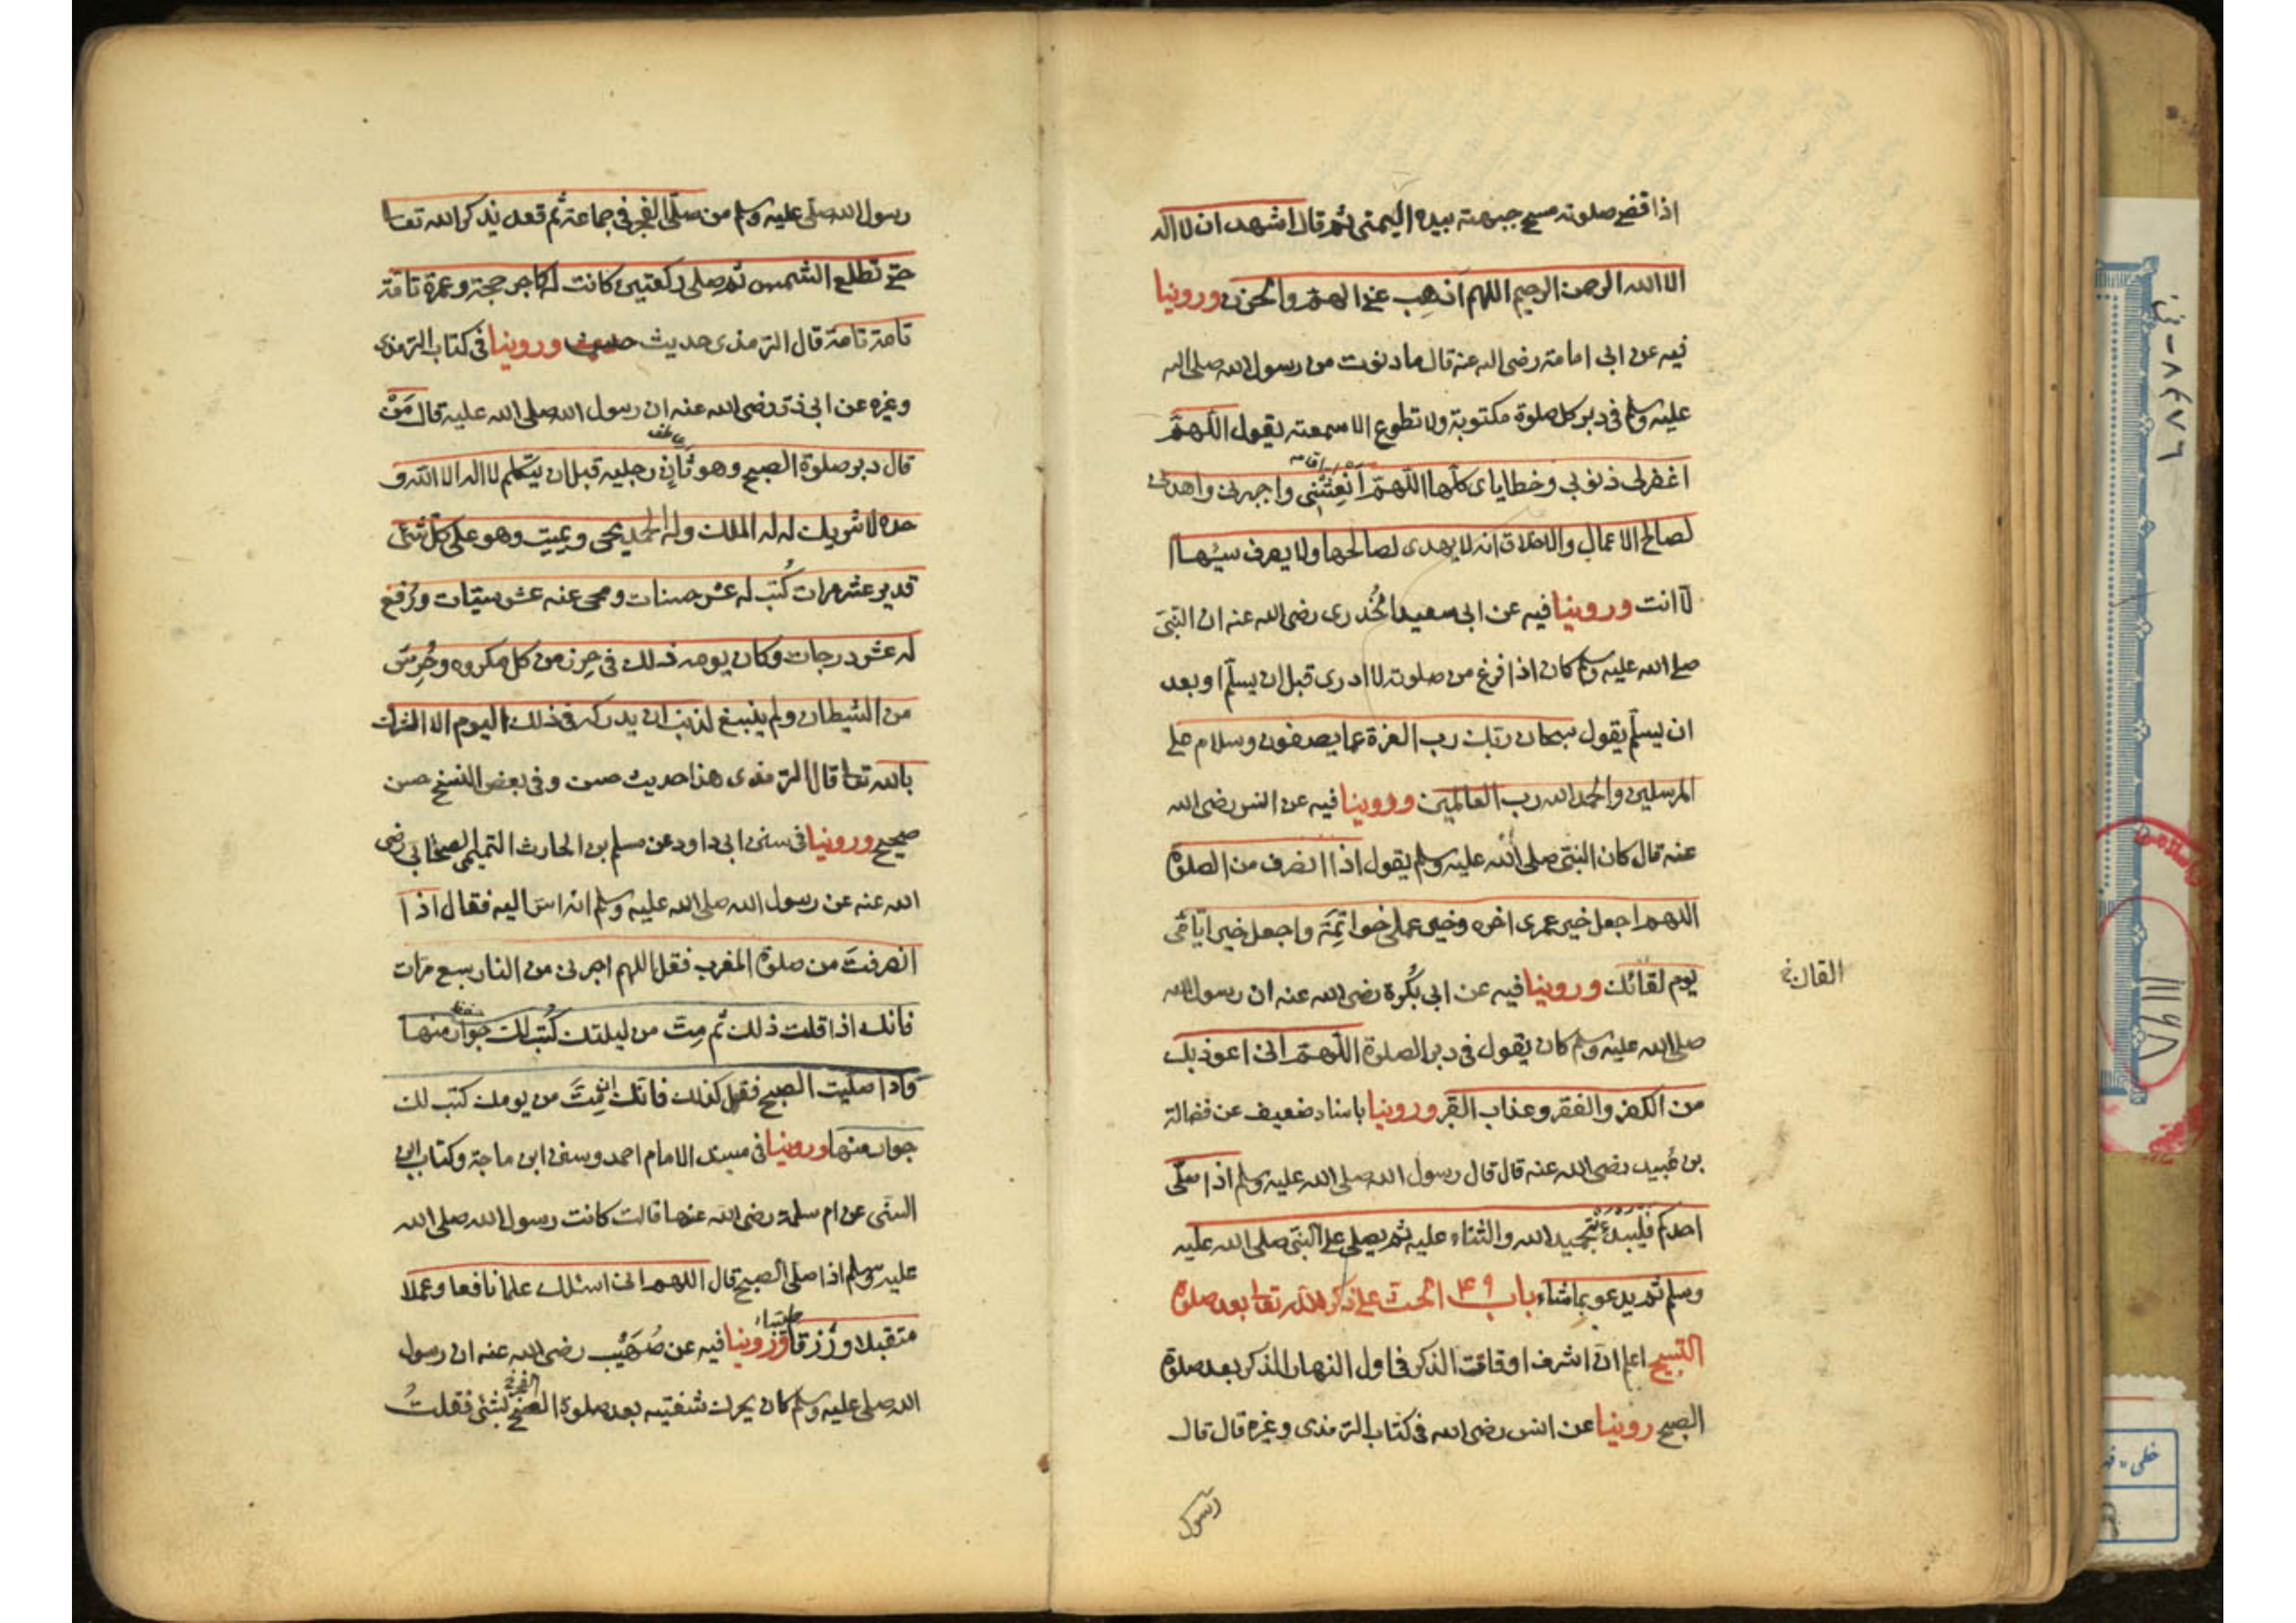 اذا قضى صلوته مسح جبهته بيده اليمنى ثم قال اشهد ان لا اله
الا الله الرحمن الرحيم اللهم اذهب عنى الهم والحزن وروينا
فيه عن ابى امامة رضى الله عنه قال ما دنوت من رسول الله صلى الله
عليه وسلم فى دبر كل صلوة مكتوبة ولا تطوع الا سمعته يقول اللهم
اغفرلى ذنوبى وخطاياى كلها اللهم أنعشنى واجبرنى واهدنى
لصالح الاعمال والاخلاق انه لا يهدى لصالحها ولا يصرف سيئها ا
لا انت وروينا فيه عن ابى سعيد الخُدرى رضى الله عنه ان النبى
صلى الله عليه وسلم كان اذا فرغ من صلوته لا ادرى قبل ان يسلم او بعد
ان يسلم يقول سبحان ربك رب العزة عما يصفون وسلام على
المرسلين والحمد لله رب العالمين وروينا فيه عن انس رضى الله
عنه قال كان النبى صلى الله عليه وسلم يقول اذا انصرف من الصلوة
اللهم اجعل خير عمرى اخره وخير عملى خواتمه واجعل خير ايامى
يوم لقائك وروينا فيه عن ابى بكرة رضى الله عنه ان رسول الله
صلى الله عليه وسلم كان يقول فى دبر الصلوة اللهم انى اعوذ بك
من الكفر والفقر وعذاب القبر وروينا باسناد ضعيف عن فضالة
بن عُبيد رضى الله عنه قال قال رسول الله صلى الله عليه وسلم اذا صلى
احدكم فليبدء بتحميد الله والثناء عليه ثم يصلى على النبى صلى الله عليه
وسلم ثم يدعو بما شاء باب ٤٩ الحث على ذكر الله تعالى بعد صلوة
الصبح اعلم ان اشرف اوقات الذكر فى اول النهار الذكر بعد صلوة
الصبح روينا عن انس رضى الله فى كتاب الترمذى وغيره قال قال
رسول
رسول الله صلى عليه وسلم من صلى الفجر فى جماعة ثم قعد يذكر الله تعالى
حتى تطلع الشمس ثم صلى ركعتين كانت له كاجر حجة وعمرة تامة
تامة تامة قال الترمذى حديث حسن وروينا فى كتاب الترمذى
وغيره عن ابى ذر رضى الله عنه ان رسول الله صلى الله عليه قال مَنْ
قال دبر صلوة الصبح وهو ثانٍ رجليه قبل ان يتكلم لا اله الا الله و
حده لا شريك له له الملك وله الحمد يحيى ويميت وهو على كل شئ
قدير عشر مرات كُتب له عشر حسنات ومحى عنه عشر سيئات ورُفع
له عشر درجات وكان يومه ذلك فى حِرز من كل مكروه وحُرِسَ
من الشيطان ولم ينبغ لذنب ان يدركه فى ذلك اليوم الا الشرك
بالله تعالى قال الترمذى هذا حديث حسن وفى بعض النسخ حسن
صحيح وروينا فى سنن ابى داود عن مسلم بن الحارث التميمى الصحابى رضى
الله عنه عن رسول الله صلى الله عليه وسلم انه اسر اليه فقال اذا
انصرفتَ من صلوة المغرب فقل اللهم اجرنى من النار سبع مرات
فانك اذا قلت ذلك ثم مِتَّ من ليلتك كُتب لك جوار منها
واذا صليت الصبح فقل كذلك فانك ان مِتَّ من يومك كتب لك
جوار منها وروينا فى مسند الامام احمد وسنن ابن ماجة وكتاب ابن
السنى عن ام سلمة رضى الله عنها قالت كانت رسول الله صلى الله
عليه وسلم اذا صلى الصبح قال اللهم انى اسئلك علما نافعا وعملا
متقبلا ورزقا طيبا وروينا فيه عن صُهَيْب رضى الله عنه ان رسول
الله صلى عليه وسلم كان يحرك شفتيه بعد صلوة الفجر بشئ فقلتُ